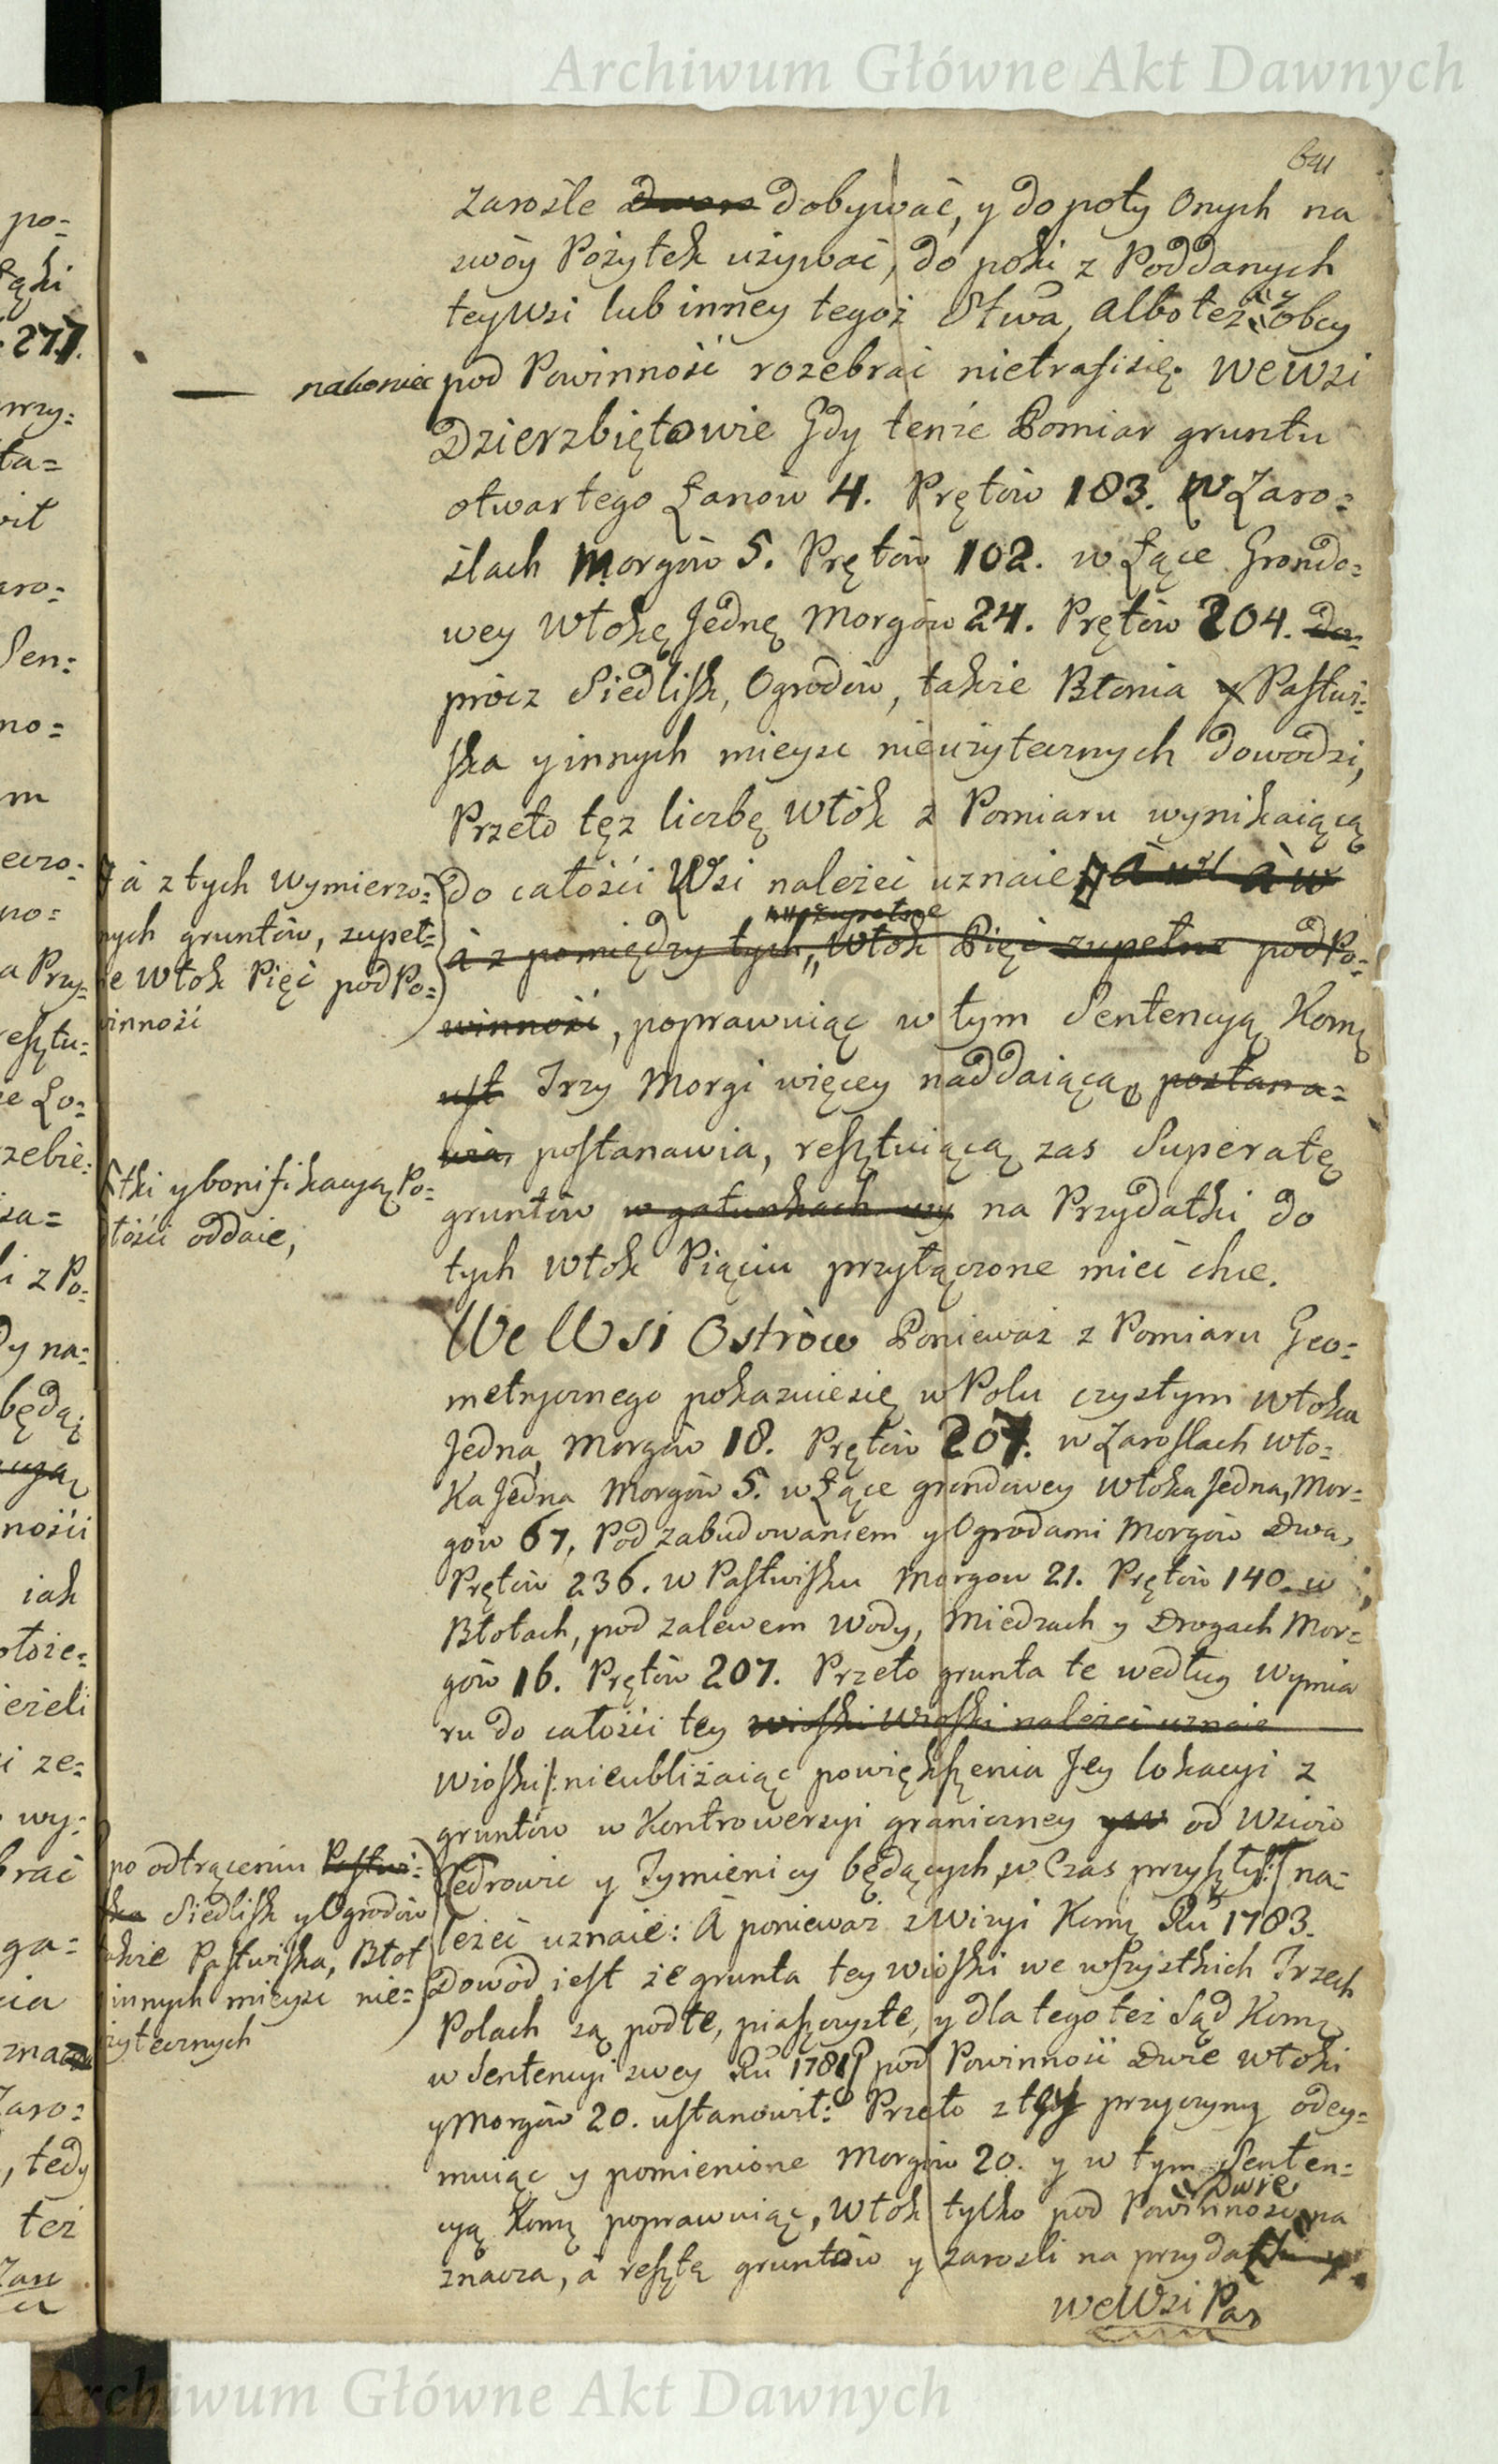 Archiwum Główne Akt Dawnych
641
zarośle dobywać, y do poły Onych na
swóy Pożytek używać, do poki z Poddanych
tey Wsi lub inney tegoż Stwa, albo też y obcy
nakoniec pod Powinność rozebrać nietrafi się. We Wsi
Dzierzbiętowie Gdy tenże Pomiar gruntu
otwartego Łanów 4. Prętów 183. W Zaro=
ślach Morgów 5. Prętów 102. w Łące Grondo=
wey Włokę Jednę Morgów 24. Prętów 204. Do=
prócz Siedlisk, Ogrodów, także Błonia y Pastwi=
ska y innych mieysc nieużytecznych dowodzi,
Przeto tęż liczbę Włók z Pomiaru wynikaiącą
do całości Wsi należeć uznaie, à w à w
à z pomiędzy tych, Włok Pięć zupełne pod Po=
winność, poprawuiąc w tym Sentencyą Komą
ust Trzy Morgi więcey naddaiącą, postana=
wia, postanawia, resztuiącą zas Superatę
gruntów w gatunkach wy na Przydatki do
tych Włok Piąciu przyłączone mieć chce.
We Wsi Ostrów Ponieważ z Pomiaru Geo=
metrycznego pokazuie się w Polu czystym Włoka
Jedna, Morgów 18. Prętów 207. w Zaroslach Wło=
Ka Jedna Morgów 5. w Łące grondowey Włoka Jedna, Mor=
gow 67, Pod zabudowaniem y Ogrodami Morgów Dwa,
Prętów 236. w Pastwisku Morgow 21. Prętów 140. w
Błotach, pod zalewem Wody, Miedzach y Drogach Mor=
gów 16. Prętów 207. Przeto grunta te według Wymia
ru do całości tey wioski Wioski należeć uznaie
Wioski/: nieubliżaiąc powiększenia Jey lokacyi z
gruntów w Kontrowersyi graniczney od Wsiów
Cedrowic y Tymienicy będących, w Czas przyszły:/ na=
leżeć uznaie: A ponieważ z Wizyi Komą Ru 1783.
Dowód iest że grunta tey wioski we wszystkich Trzech
Polach są podłe, piaszczyste, y dla tego też Sąd Komą
w Sentencyi swey Ru 1781 pod Powinność Dwie włoki
y Morgów 20. ustanowił: Przeto z tey przyczyny odey=
muiąc y pomienione Morgów 20. y w tym Senten=
cyą Komą poprawuiąc, Włok tylko Dwie pod Powinność na
znacza, à resztę gruntów y zarosli na przydatki y
we Wsi Par
à z tych Wymierzo=
nych gruntów, zupeł=
ne Włok Pięć pod Po=
winność
tki y bonifikacyą Po=
łości oddaie,
po odtrąceniu Pastwi=
ska Siedlisk y Ogrodów
także Pastwiska, Błot
innych mieysc nie=
żytecznych
po=
277.
wrzy:
ła=
aro=
Sen:
no=
m
eczo:
no=
a Przy=
resztu=
ze Lo=
zebie:
za=
i z Po=
dy na=
będą;
ności
iak
otoże=
ieżeli
i ze=
wy:
brać
ga=
cia
Zaro=
, tedy
też
Archiwum Główne Akt Dawnych